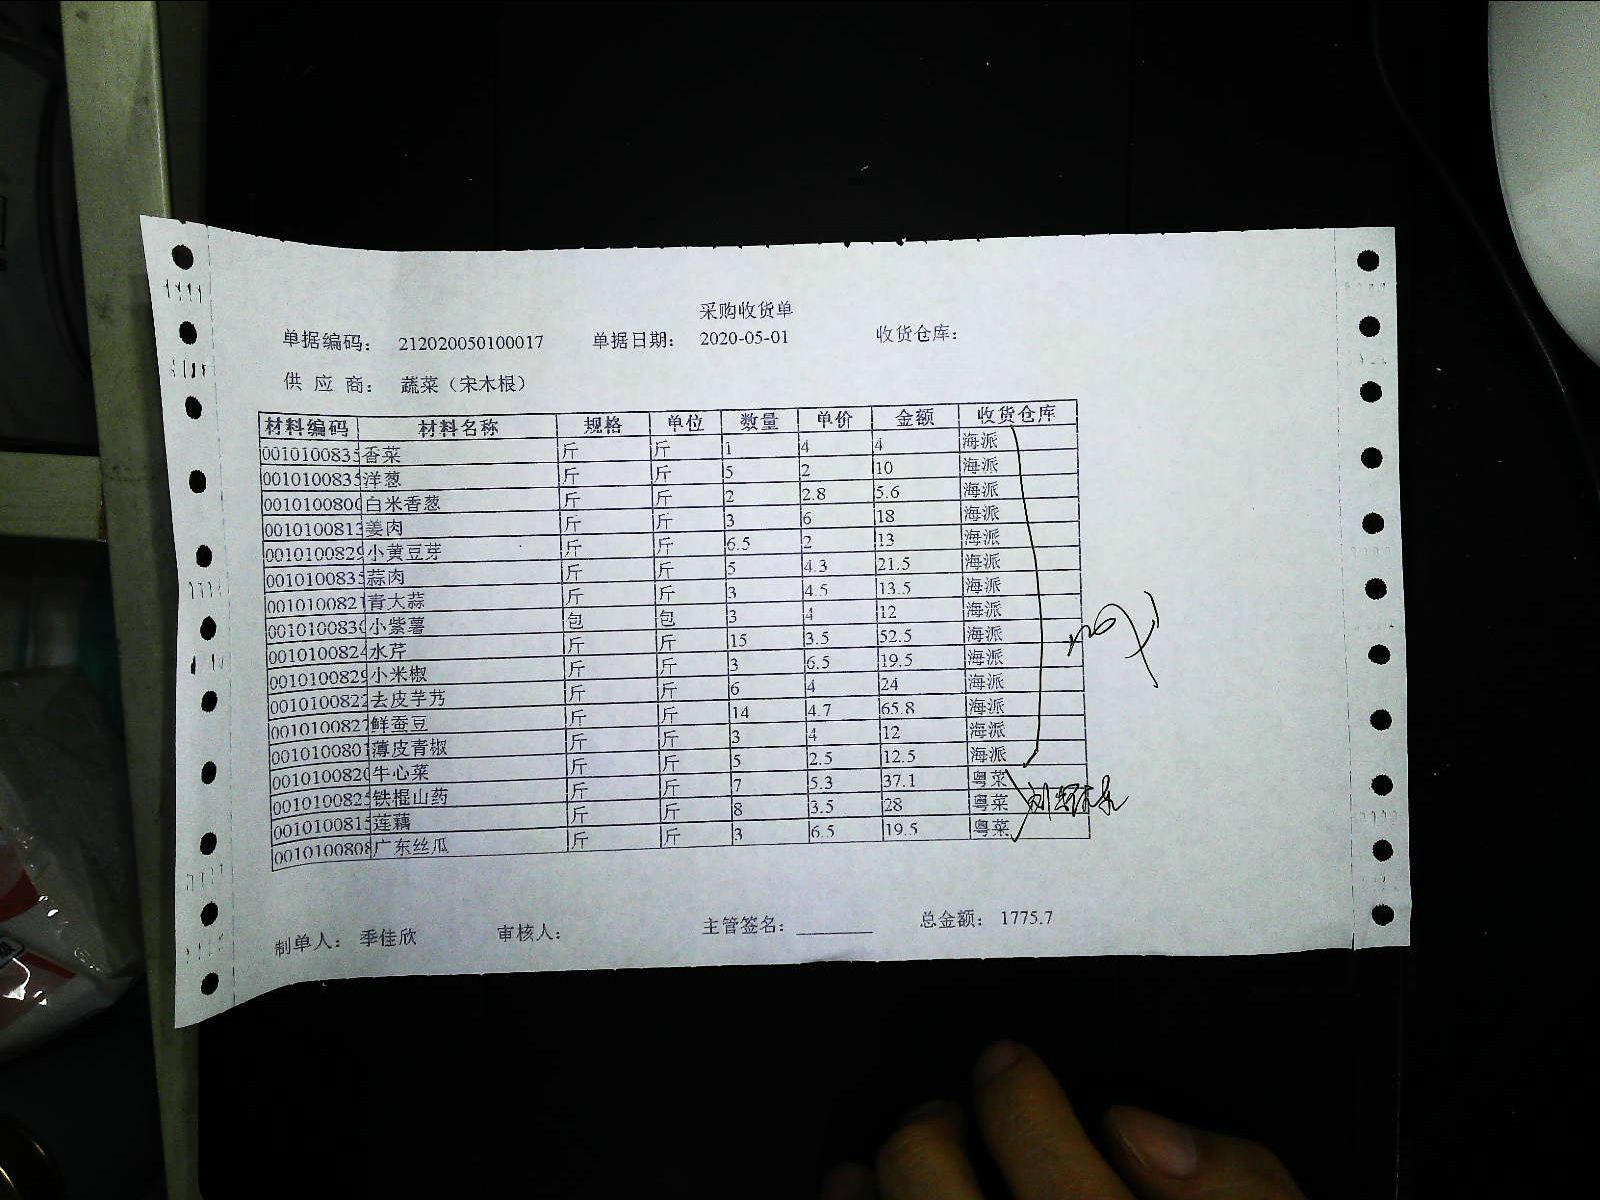 采购收货单
单据编码： 212020050100017 单据日期： 2020-05-01 收货仓库：
供 应 商： 蔬菜（宋木根）
材料编码 材料名称 规格 单位 数量 单价 金额 收货仓库
0010100835 香菜 斤 斤 1 4 4 海派
0010100835 洋葱 斤 斤 5 2 10 海派
0010100800 白米香葱 斤 斤 2 2.8 5.6 海派
0010100813 姜肉 斤 斤 3 6 18 海派
0010100829 小黄豆芽 斤 斤 6.5 2 13 海派
0010100835 蒜肉 斤 斤 5 4.3 21.5 海派
0010100821 青大蒜 斤 斤 3 4.5 13.5 海派
0010100830 小紫薯 包 包 3 4 12 海派
0010100824 水芹 斤 斤 15 3.5 52.5 海派
0010100829 小米椒 斤 斤 3 6.5 19.5 海派
0010100822 去皮芋艿 斤 斤 6 4 24 海派
0010100827 鲜蚕豆 斤 斤 14 4.7 65.8 海派
0010100801 薄皮青椒 斤 斤 3 4 12 海派
0010100820 牛心菜 斤 斤 5 2.5 12.5 海派
0010100825 铁棍山药 斤 斤 7 5.3 37.1 粤菜
0010100815 莲藕 斤 斤 8 3.5 28 粤菜
0010100808 广东丝瓜 斤 斤 3 6.5 19.5 粤菜
制单人： 季佳欣 审核人： 主管签名：________ 总金额： 1775.7